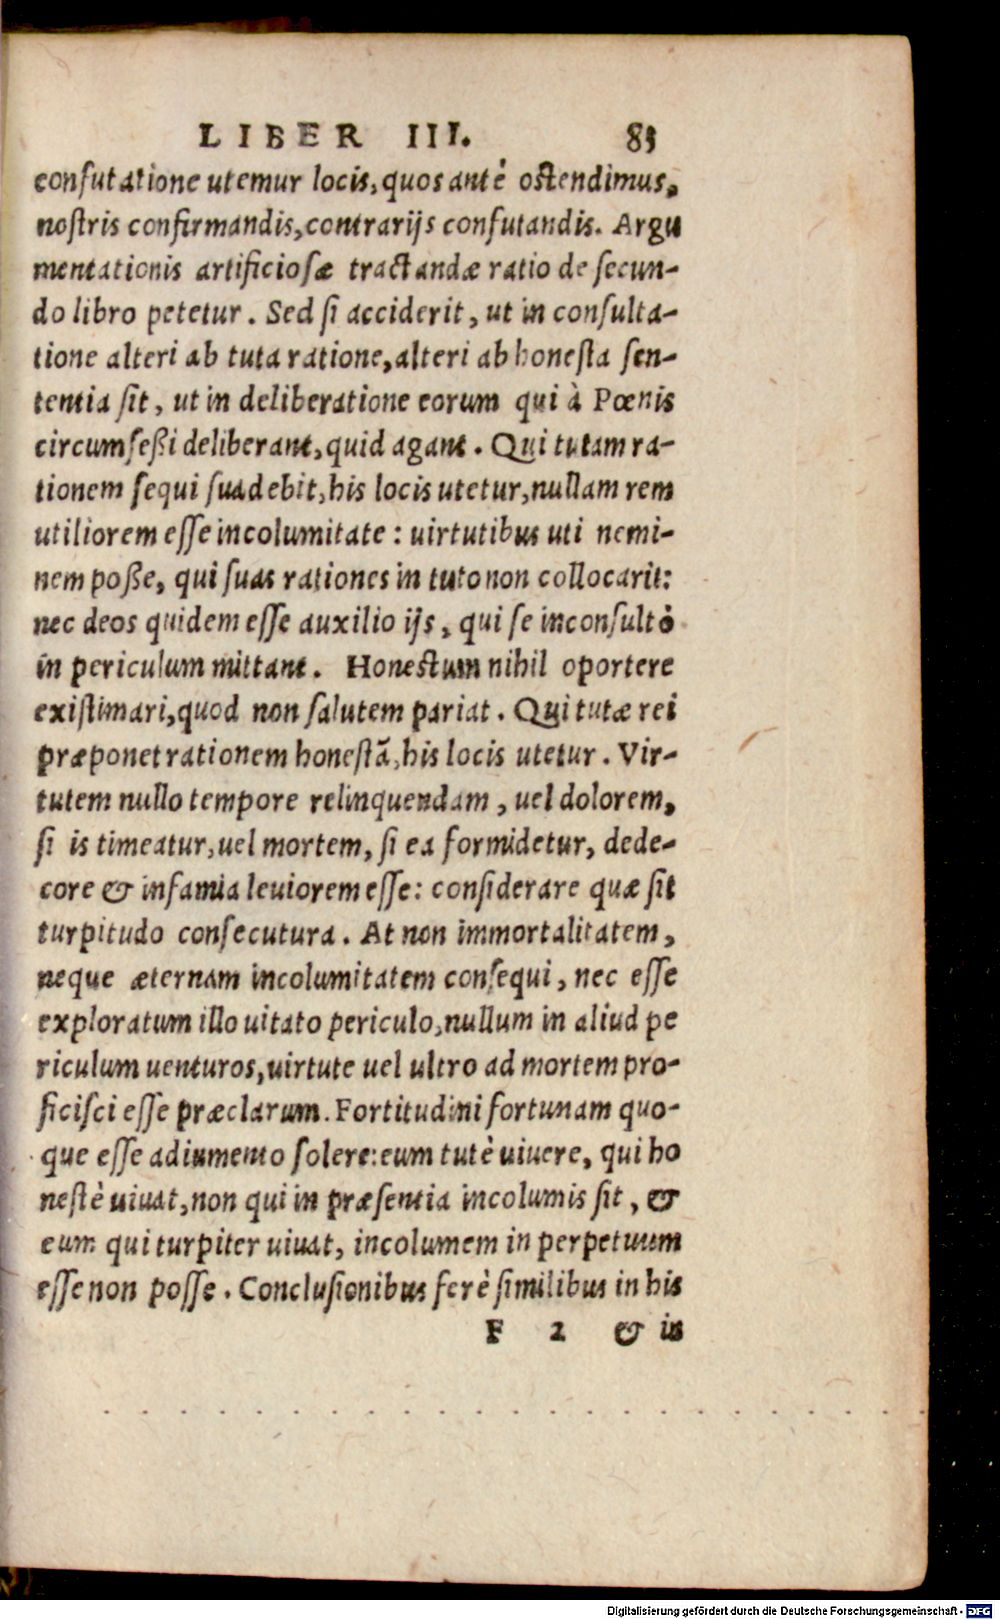 LIBER III. 83
confutatione utemur locis, quos antè ostendimus,
nostris confirmandis, contrarijs confutandis. Argu
mentationis artificiosæ tractandæ ratio de secun-
do libro petetur. Sed si acciderit, ut in consulta-
tione alteri ab tuta ratione, alteri ab honesta sen-
tentia sit, ut in deliberatione eorum qui à Pœnis
circumseßi deliberant, quid agant. Qui tutam ra-
tionem sequi suadebit, his locis utetur, nullam rem
utiliorem esse incolumitate: uirtutibus uti nemi-
nem poße, qui suas rationes in tuto non collocarit:
nec deos quidem esse auxilio ijs, qui se inconsultò
in periculum mittant. Honestum nihil oportere
existimari, quod non salutem pariat. Qui tutæ rei
præponet rationem honestã, his locis utetur. Vir-
tutem nullo tempore relinquendam, uel dolorem,
si is timeatur, uel mortem, si ea formidetur, dede-
core & infamia leuiorem esse: considerare quæ sit
turpitudo consecutura. At non immortalitatem,
neque æternam incolumitatem consequi, nec esse
exploratum illo uitato periculo, nullum in aliud pe
riculum uenturos, uirtute uel ultro ad mortem pro-
ficisci esse præclarum. Fortitudini fortunam quo-
que esse adiumento solere: eum tutè uiuere, qui ho
nestè uiuat, non qui in præsentia incolumis sit, &
eum qui turpiter uiuat, incolumem in perpetuum
esse non posse. Conclusionibus ferè similibus in his
F 2 & in
Digitalisierung gefördert durch die Deutsche Forschungsgemeinschaft - DFG